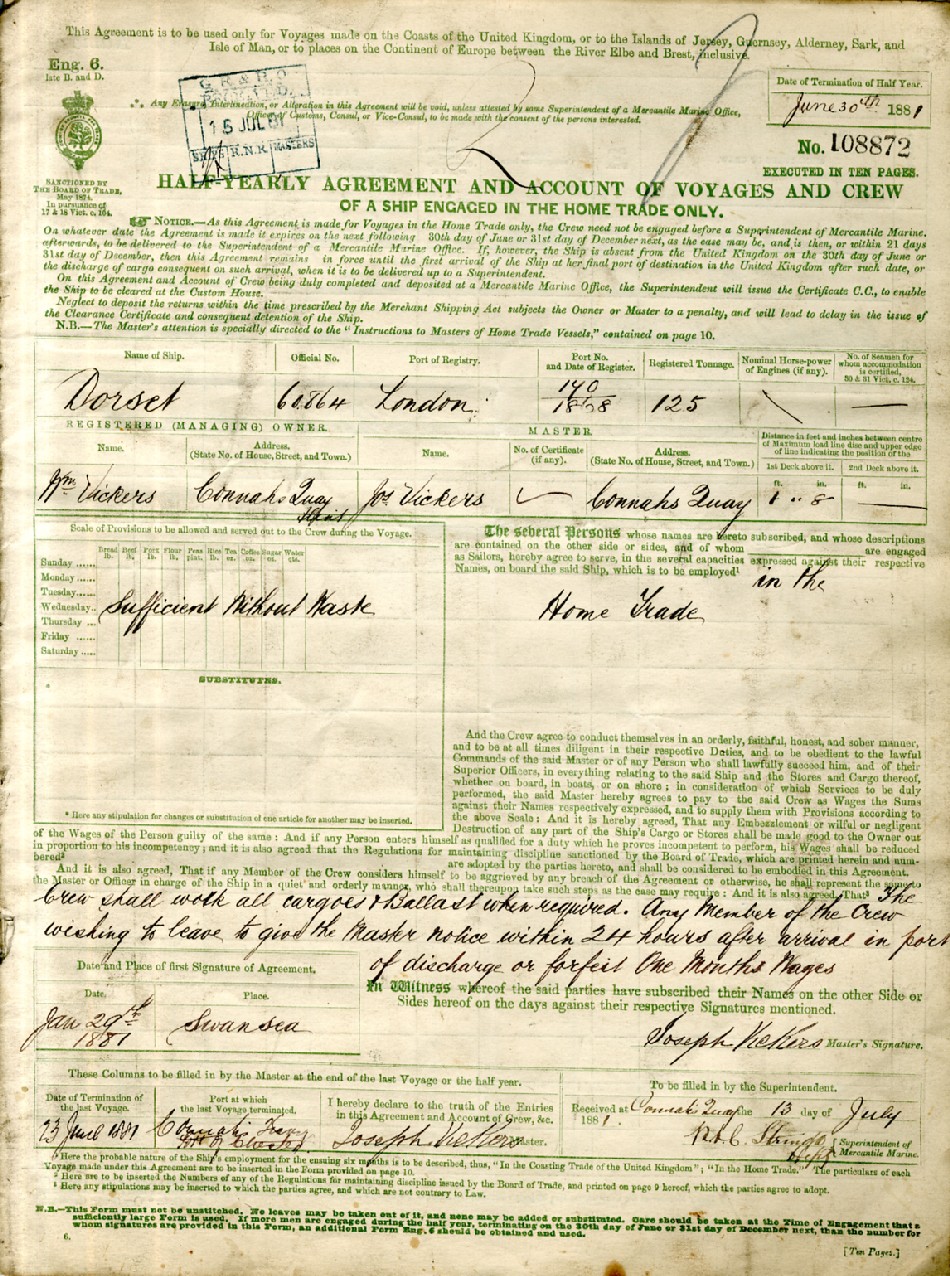 This Agreement is to be used only for Voyages made on the Coasts of the United Kingdom, or to the Islands of Jersey, Guernsey, Alderney, Sark, and
Isle of Man, or to places on the Continent of Europe between the River Elbe and Brest, inclusive.
Eng. 6.
late B. and D.
Date of Termination of Half Year.
June 30th 1881
15 JUL 81
SHIPS R.N.R. MASTERS
*** Any Erasure, Interlineation, or Alteration in this Agreement will be void, unless attested by some Superintendent of a Mercantile Marine Office,
Officer of Customs, Consul, or Vice-Consul, to be made with the consent of the persons interested.
No. 108872
EXECUTED IN TEN PAGES.
SANCTIONED BY
THE BOARD OF TRADE,
May 1874.
In pursuance of
17 & 18 Vict. c. 104.
HALF-YEARLY AGREEMENT AND ACCOUNT OF VOYAGES AND CREW
OF A SHIP ENGAGED IN THE HOME TRADE ONLY.
NOTICE.—As this Agreement is made for Voyages in the Home Trade only, the Crew need not be engaged before a Superintendent of Mercantile Marine.
On whatever date the Agreement is made it expires on the next following 30th day of June or 31st day of December next, as the case may be, and is then, or within 21 days
afterwards, to be delivered to the Superintendent of a Mercantile Marine Office. If, however, the Ship is absent from the United Kingdom on the 30th day of June or
31st day of December, then this Agreement remains in force until the first arrival of the Ship at her final port of destination in the United Kingdom after such date, or
the discharge of cargo consequent on such arrival, when it is to be delivered up to a Superintendent.
On this Agreement and Account of Crew being duly completed and deposited at a Mercantile Marine Office, the Superintendent will issue the Certificate C.C., to enable
the Ship to be cleared at the Custom House.
Neglect to deposit the returns within the time prescribed by the Merchant Shipping Act subjects the Owner or Master to a penalty, and will lead to delay in the issue of
the Clearance Certificate and consequent detention of the Ship.
N.B.—The Master's attention is specially directed to the "Instructions to Masters of Home Trade Vessels," contained on page 10.
Name of Ship. Official No. Port of Registry. Port No. and Date of Register. Registered Tonnage. Nominal Horse-power of Engines (if any). No. of Seamen for whom accommodation is certified, 30 & 31 Vict. c. 124.
Dorset 60,864 London 140 125
REGISTERED (MANAGING) OWNER. MASTER.
Distance in feet and inches between centre of Maximum load line disc and upper edge of line indicating the position of the
Name. Address. (State No. of House, Street, and Town.) Name. No. of Certificate (if any). Address. (State No. of House, Street, and Town.) 1st Deck above it. 2nd Deck above it.
ft. in. ft. in.
Wm Vickers Connahs Quay Jos Vickers Connahs Quay 1 " 8
Scale of Provisions to be allowed and served out to the Crew during the Voyage.
Bread lb. Beef lb. Pork lb. Flour lb. Peas pint. Rice lb. Tea oz. Coffee oz. Sugar oz. Water qts.
Sunday ......
Monday ......
Tuesday......
Wednesday..
Thursday ....
Friday ......
Saturday.....
Sufficient Without Waste
SUBSTITUTES.
* Here any stipulation for changes or substitution of one article for another may be inserted.
The several Persons whose names are hereto subscribed, and whose descriptions
are contained on the other side or sides, and of whom are engaged
as Sailors, hereby agree to serve, in the several capacities expressed against their respective
Names, on board the said Ship, which is to be employed¹ in the
Home Trade
And the Crew agree to conduct themselves in an orderly, faithful, honest, and sober manner,
and to be at all times diligent in their respective Duties, and to be obedient to the lawful
Commands of the said Master or of any Person who shall lawfully succeed him, and of their
Superior Officers, in everything relating to the said Ship and the Stores and Cargo thereof,
whether on board, in boats, or on shore; in consideration of which Services to be duly
performed, the said Master hereby agrees to pay to the said Crew as Wages the Sums
against their Names respectively expressed, and to supply them with Provisions according to
the above Scale: And it is hereby agreed, That any Embezzlement or wilful or negligent
Destruction of any part of the Ship's Cargo or Stores shall be made good to the Owner out
of the Wages of the Person guilty of the same: And if any Person enters himself as qualified for a duty which he proves incompetent to perform, his Wages shall be reduced
in proportion to his incompetency; and it is also agreed that the Regulations for maintaining discipline sanctioned by the Board of Trade, which are printed herein and num-
bered² are adopted by the parties hereto, and shall be considered to be embodied in this Agreement.
And it is also agreed, That if any Member of the Crew considers himself to be aggrieved by any breach of the Agreement or otherwise, he shall represent the same to
the Master or Officer in charge of the Ship in a quiet and orderly manner, who shall thereupon take such steps as the case may require: And it is also agreed, That³ The
Crew shall work all cargoes & Ballast when required. Any Member of the Crew
wishing to leave to give the Master notice within 24 hours after arrival in port
of discharge or forfeit One Months Wages
Date and Place of first Signature of Agreement.
Date. Place.
Jan 29th 1881 Swansea
In Witness whereof the said parties have subscribed their Names on the other Side or
Sides hereof on the days against their respective Signatures mentioned.
Joseph Vickers Master's Signature.
These Columns to be filled in by the Master at the end of the last Voyage or the half year.
To be filled in by the Superintendent.
Date of Termination of the last Voyage. Port at which the last Voyage terminated. I hereby declare to the truth of the Entries in this Agreement and Account of Crew, &c.
23 June 1881 Connahs Quay Port of Chester Joseph Vickers Master.
Received at Connahs Quay the 13 day of July
1881.
Superintendent of Mercantile Marine.
¹ Here the probable nature of the Ship's employment for the ensuing six months is to be described, thus, "In the Coasting Trade of the United Kingdom"; "In the Home Trade." The particulars of each
Voyage made under this Agreement are to be inserted in the Form provided on page 10.
² Here are to be inserted the Numbers of any of the Regulations for maintaining discipline issued by the Board of Trade, and printed on page 9 hereof, which the parties agree to adopt.
³ Here any stipulations may be inserted to which the parties agree, and which are not contrary to Law.
N.B.—This Form must not be unstitched. No leaves may be taken out of it, and none may be added or substituted. Care should be taken at the Time of Engagement that a
sufficiently large Form is used. If more men are engaged during the half year, terminating on the 30th day of June or 31st day of December next, than the number for
whom signatures are provided in this Form, an additional Form Eng. 6 should be obtained and used.
6.
[Ten Pages.]